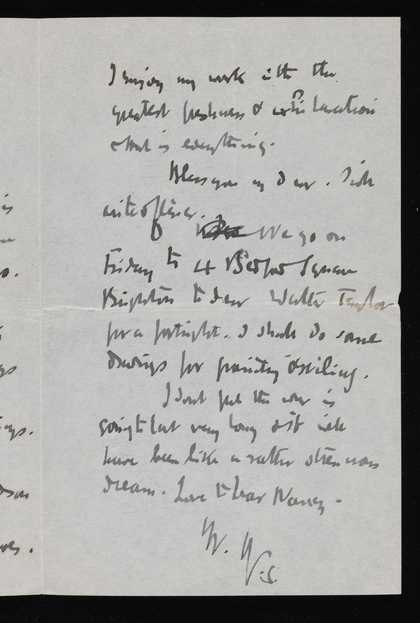 I enjoy my work with the
greatest freshness & without
& that is everything.
Bless you my dear. I will
write oftener.
We go on
Friday to 4 Bedford Square
Brighton to dear Walter Taylor
for a fortnight. I shall do some
drawings for painting & etching.
I dont feel the war is
going to last very long & it will
have been like a rather strenuous
dream. Love to dear Nancy -
is
s.
gs
ings.